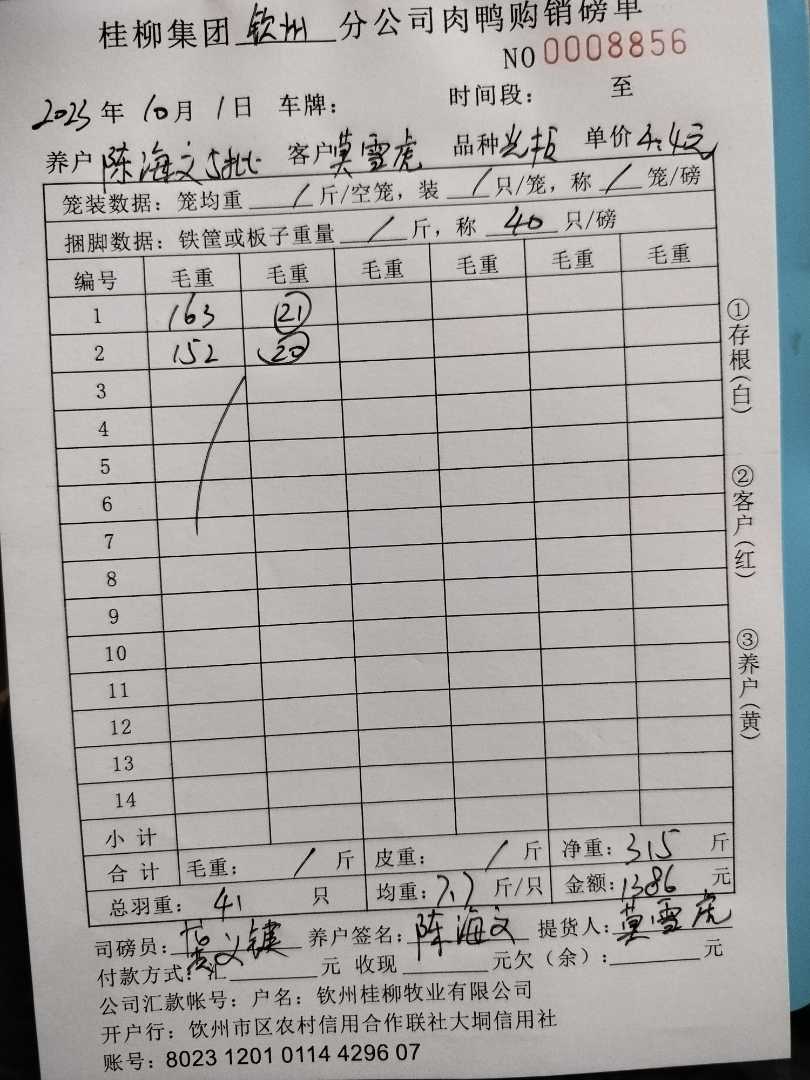 桂柳集团 钦州 分公司肉鸭购销磅单
NO 0008856
2023 年 10 月 1 日 车牌: 时间段: 至
养户 陈海文5批 客户 莫雪虎 品种 光板 单价 4.4元
笼装数据: 笼均重 / 斤/空笼, 装 / 只/笼, 称 / 笼/磅
捆脚数据: 铁筐或板子重量 / 斤, 称 40 只/磅
编号 毛重 毛重 毛重 毛重 毛重 毛重
1 163 21
2 152 20
3
4
5
6
7
8
9
10
11
12
13
14
小计
合计 毛重: / 斤 皮重: / 斤 净重: 315 斤
总羽重: 41 只 均重: 7.7 斤/只 金额: 1386 元
司磅员: 养户签名: 陈海文 提货人: 莫雪虎
付款方式: 汇 元 收现 元欠(余): 元
公司汇款帐号: 户名: 钦州桂柳牧业有限公司
开户行: 钦州市区农村信用合作联社大垌信用社
账号: 8023 1201 0114 4296 07
①存根(白)
②客户(红)
③养户(黄)